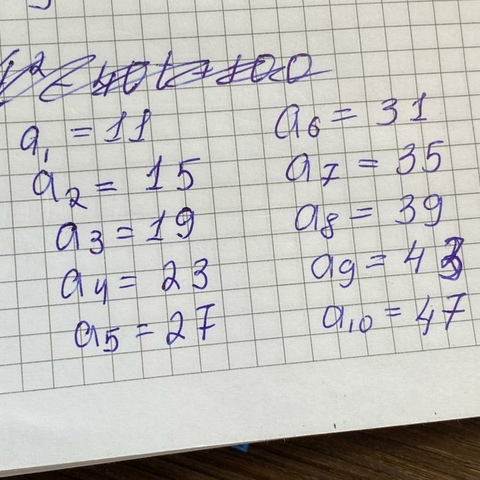 a₁ = 11
a₂ = 15
a₃ = 19
a₄ = 23
a₅ = 27
a₆ = 31
a₇ = 35
a₈ = 39
a₉ = 43
a₁₀ = 47